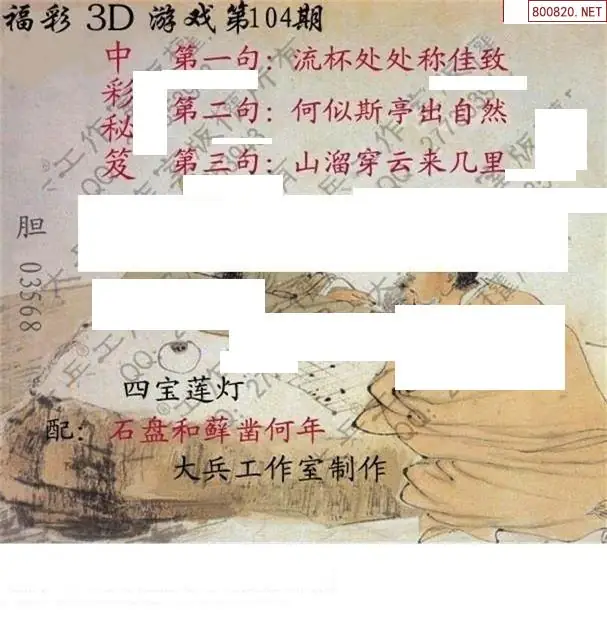 福彩 3D 游戏第104期
800820.NET
中彩秘笈
第一句：流杯处处称佳致
第二句：何似斯亭出自然
第三句：山溜穿云来几里
胆 03568
四宝莲灯
配：石盘和藓凿何年
大兵工作室制作